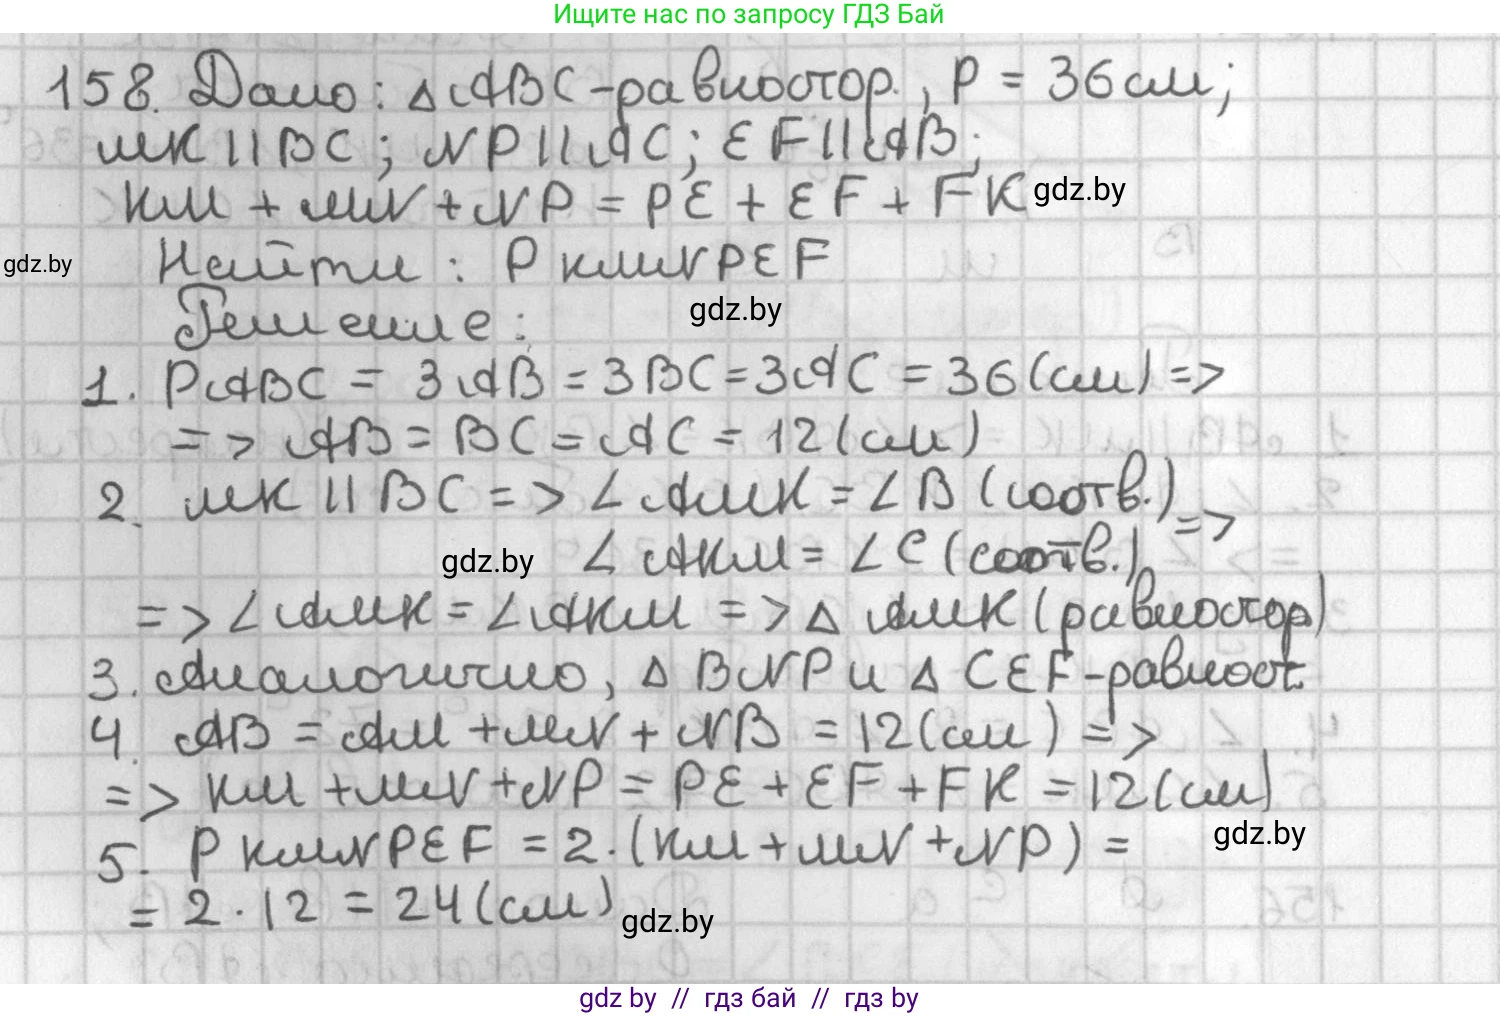 Ищите нас по запросу ГДЗ Бай
158. Дано: △ABC-равностор., P = 36 см;
MK || BC; NP || AC; EF || AB;
KM + MN + NP = PE + EF + FK gdz.by
gdz.by Найти: P KMNPEF
Решение: gdz.by
1. PABC = 3AB = 3BC = 3AC = 36 (см) =>
=> AB = BC = AC = 12 (см)
2. MK || BC => ∠AMK = ∠B (соотв.)
gdz.by ∠AKM = ∠C (соотв.) =>
=> ∠AMK = ∠AKM => △ AMK (равностор)
3. Аналогично, △ BNP и △ CEF-равност.
4. AB = AM + MN + NB = 12 (см) =>
=> KM + MN + NP = PE + EF + FK = 12 (см)
5. P KMNPEF = 2 · (KM + MN + NP) = gdz.by
= 2 · 12 = 24 (см) gdz.by
gdz by // гдз бай // гдз by